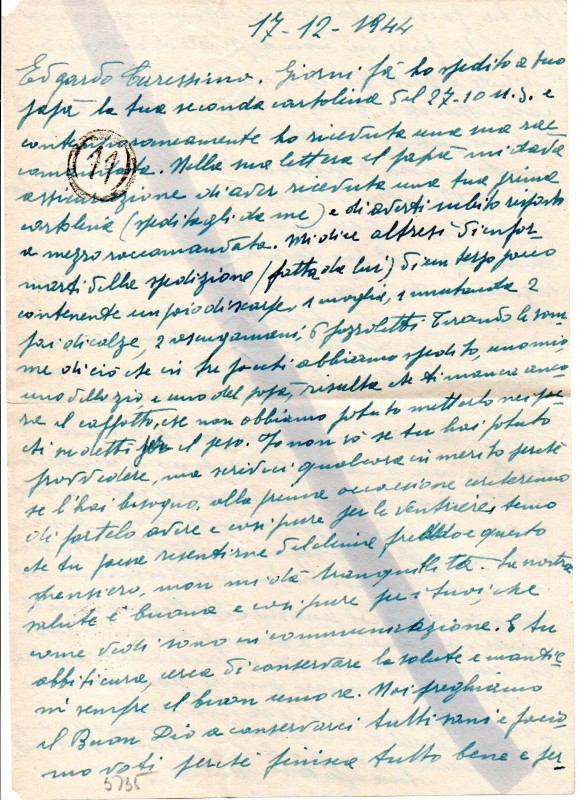 17-12-1944
Edgardo Carissimo. Giorni fà ho spedito a tuo
papà la tua seconda cartolina del 27-10 u.s. e
contemporaneamente ho ricevuta una sua rac
comandata. Nella sua lettera il papà mi dava
assicurazione di aver ricevuta una tua prima
cartolina (speditagli da me) e di averti subito risposto
a mezzo raccomandata. Mi dice altresì d'infor-
marti della spedizione (fatta da lui) di un terzo pacco
contenente un paio di scarpe, 1 maglia, 1 mutanda 2
pai di calze, 2 asciugamani, 6 fazzoletti. Tirando le som
me di ciò che in tre punti abbiamo spedito, uno mio,
uno dello zio e uno del papà, risulta che ti manca anco
ra il cappotto, che non abbiamo potuto metterlo nei pac
chi suddetti per il peso. Io non so se tu hai potuto
provvedere, ma scrivici qualcosa in merito perché
se l'hai bisogno, alla prima occasione cercheremo
di fartelo avere e così pure per le ventriere; temo
che tu possa risentirne del clima freddo e questo
pensiero, non mi dà tranquillità. La nostra
salute è buona e così pure per i tuoi, che
come vedi sono in comunicazione. E tu
abbiti cura, cerca di conservare la salute e mantie
ni sempre il buon umore. Noi preghiamo
il Buon Dio a conservarci tutti sani e faccia
mo voti perché finisca tutto bene e per
11
3735